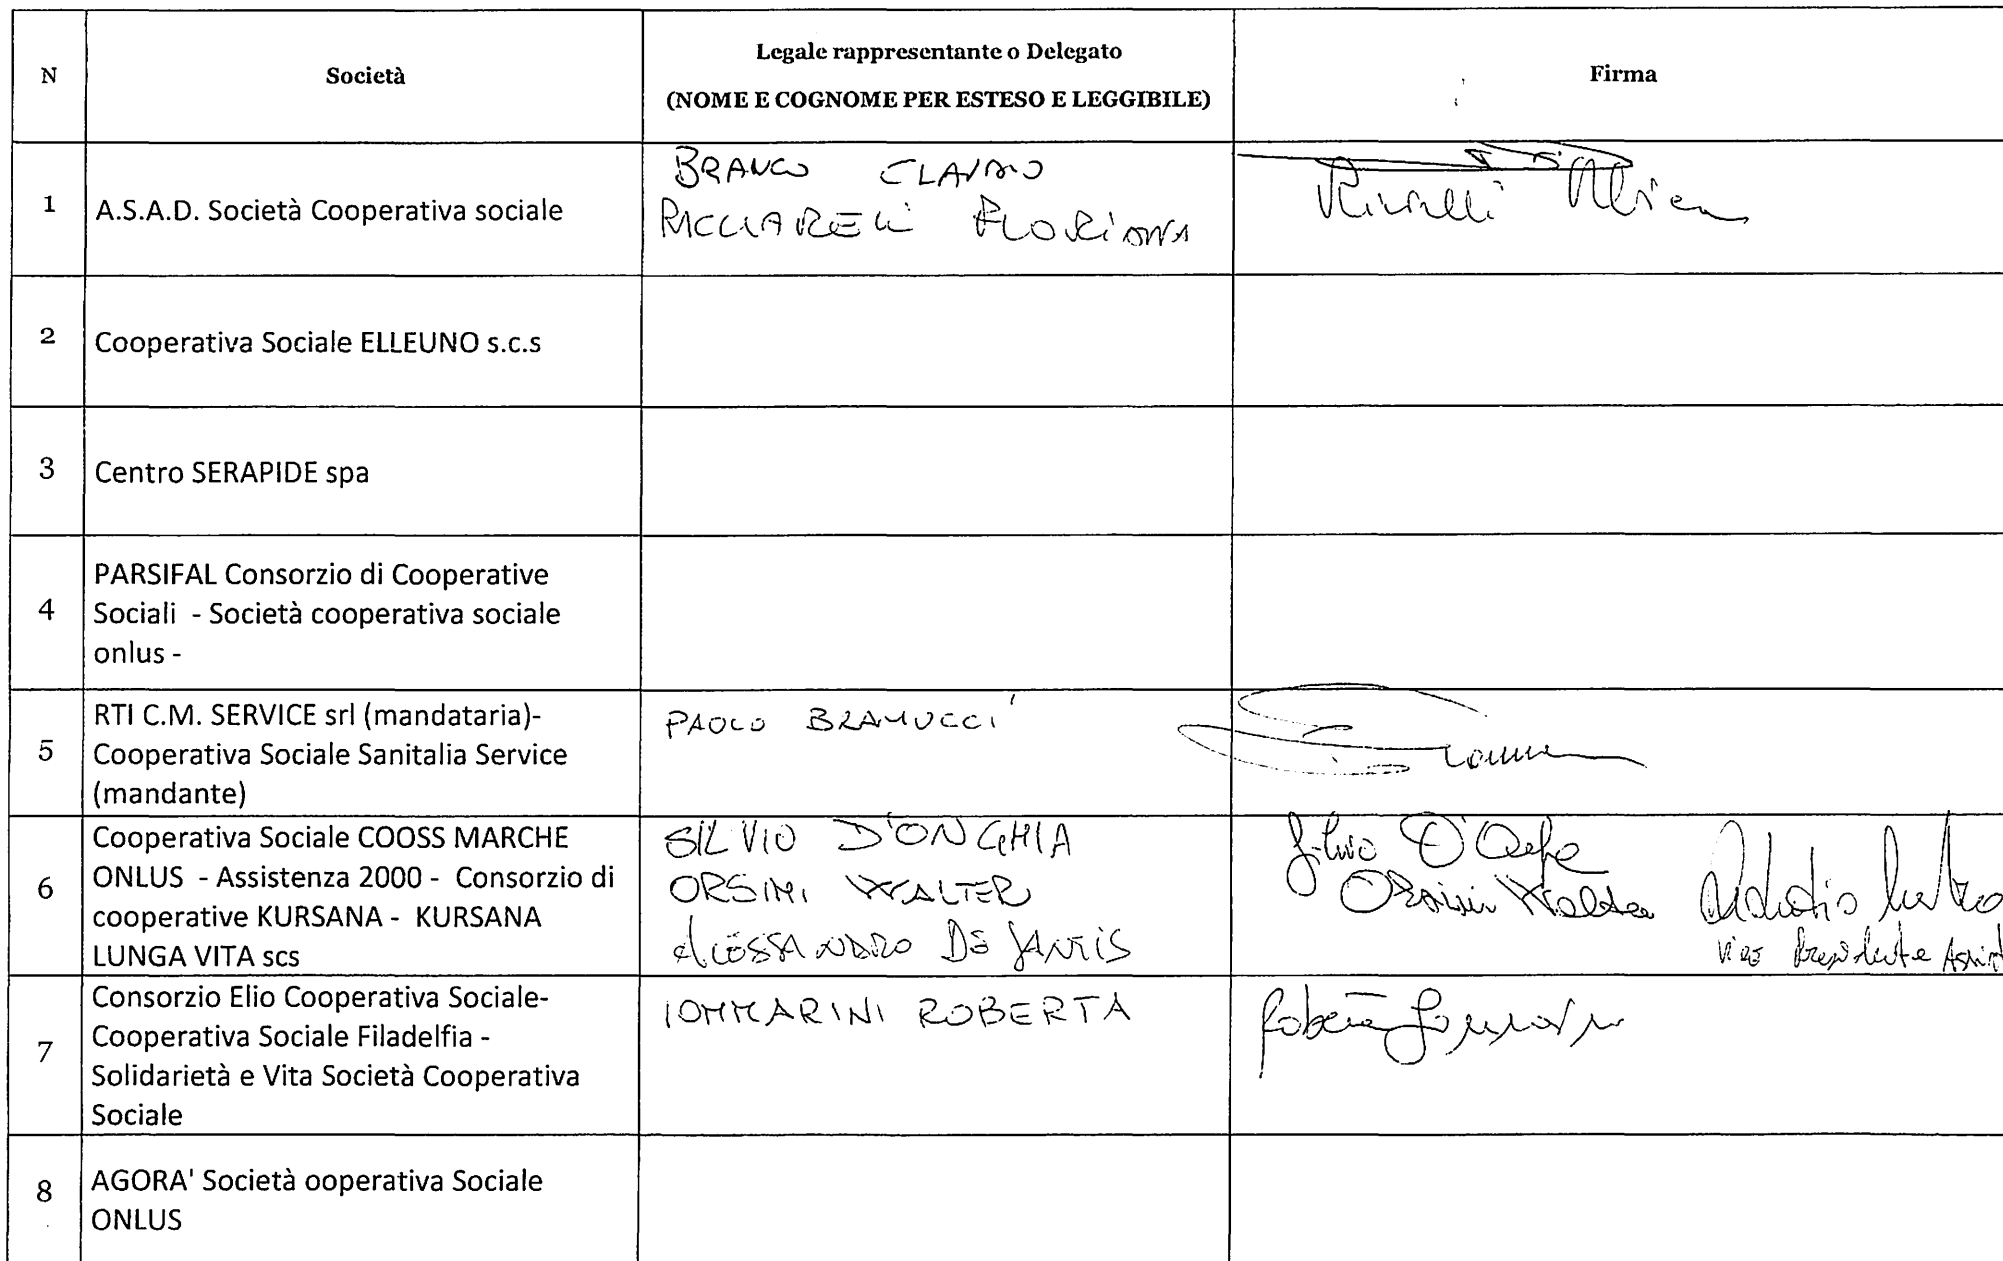 N
Società
Legale rappresentante o Delegato
(NOME E COGNOME PER ESTESO E LEGGIBILE)
Firma
1
A.S.A.D. Società Cooperativa sociale
BRANCO CLAUDIO
RICCIARELLI FLORIANA
2
Cooperativa Sociale ELLEUNO s.c.s
3
Centro SERAPIDE spa
4
PARSIFAL Consorzio di Cooperative
Sociali - Società cooperativa sociale
onlus -
5
RTI C.M. SERVICE srl (mandataria)-
Cooperativa Sociale Sanitalia Service
(mandante)
PAOLO BRAMUCCI
6
Cooperativa Sociale COOSS MARCHE
ONLUS - Assistenza 2000 - Consorzio di
cooperative KURSANA - KURSANA
LUNGA VITA scs
SILVIO D'ONGHIA
ORSINI WALTER
ALESSANDRO DE SANTIS
Silvio
Orsini Walter
Vice Presidente
7
Consorzio Elio Cooperativa Sociale-
Cooperativa Sociale Filadelfia -
Solidarietà e Vita Società Cooperativa
Sociale
IOMMARINI ROBERTA
Roberta
8
AGORA' Società ooperativa Sociale
ONLUS